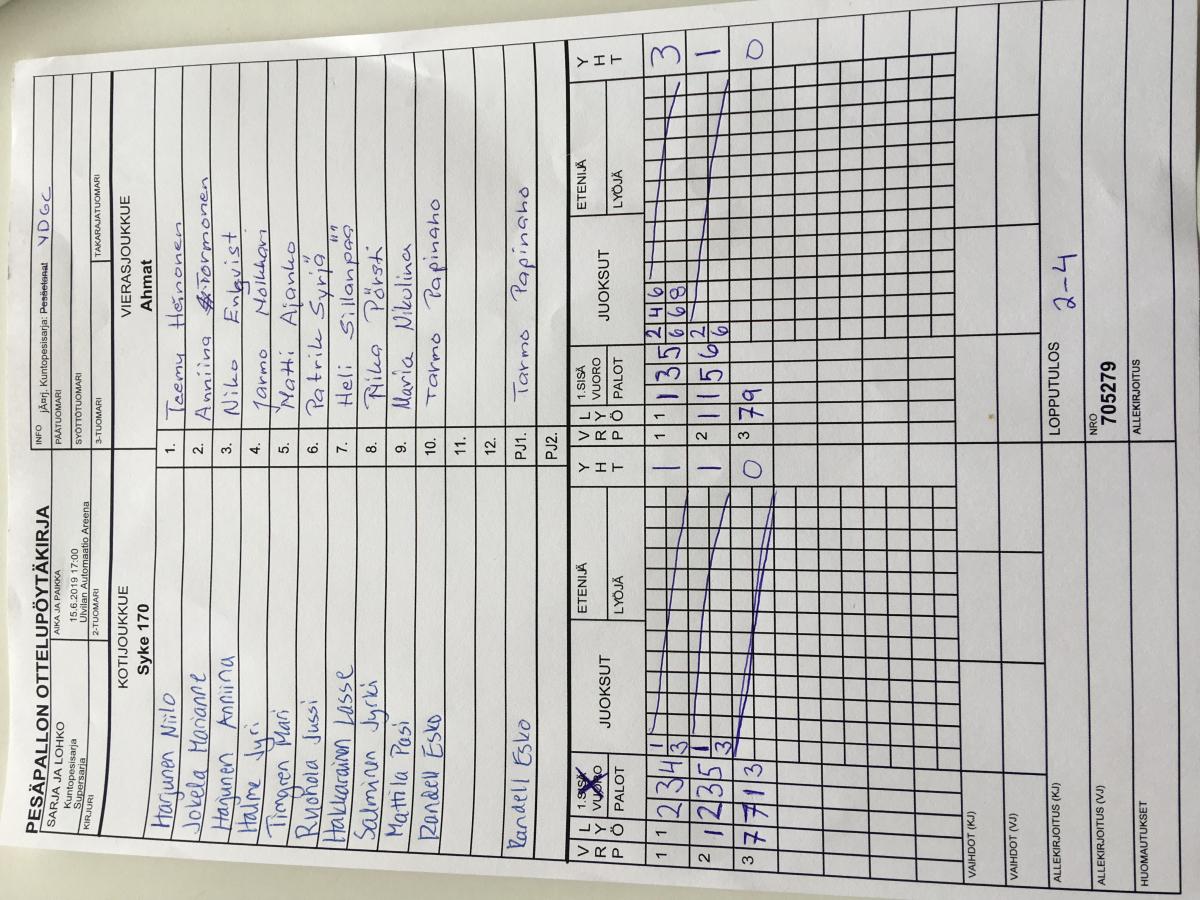 PESÄPALLON OTTELUPÖYTÄKIRJA
SARJA JA LOHKO
Kuntopesisarja
Supersarja
AIKA JA PAIKKA
15.6.2019 17:00
Ulvilan Automaatio Areena
INFO järj. Kuntopesisarja: Pesäetanat YDGC
PÄÄTUOMARI
SYÖTTÖTUOMARI
KIRJURI
2-TUOMARI
3-TUOMARI
TAKARAJATUOMARI
KOTIJOUKKUE
Syke 170
VIERASJOUKKUE
Ahmat
Harjunen Niilo 1. Teemu Heinonen
Jokela Marianne 2. Anniina Tormonen
Harjunen Anniina 3. Niko Enqvist
Halme Jyri 4. Jarmo Moikkari
Timgren Mari 5. Matti Ajanko
Ruohola Jussi 6. Patrik Syrjä
Hakkarainen Lasse 7. Heli Sillanpää
Salminen Jyrki 8. Riika Pörsti
Mattila Pasi 9. Maria Nikulina
Randell Esko 10. Tarmo Papinaho
11.
12.
Randell Esko PJ1. Tarmo Papinaho
PJ2.
V R P L Y Ö 1.SISÄ VUORO PALOT JUOKSUT ETENIJÄ LYÖJÄ Y H T V R P L Y Ö 1.SISÄ VUORO PALOT JUOKSUT ETENIJÄ LYÖJÄ Y H T
1 1 2 3 4 1 3 1 1 1 1 3 5 2 4 6 6 6 8 3
2 1 2 3 5 1 3 1 2 1 1 5 6 2 6 1
3 7 7 1 3 0 3 7 9 0
VAIHDOT (KJ)
VAIHDOT (VJ)
ALLEKIRJOITUS (KJ)
LOPPUTULOS 2-4
ALLEKIRJOITUS (VJ)
NRO
705279
HUOMAUTUKSET
ALLEKIRJOITUS